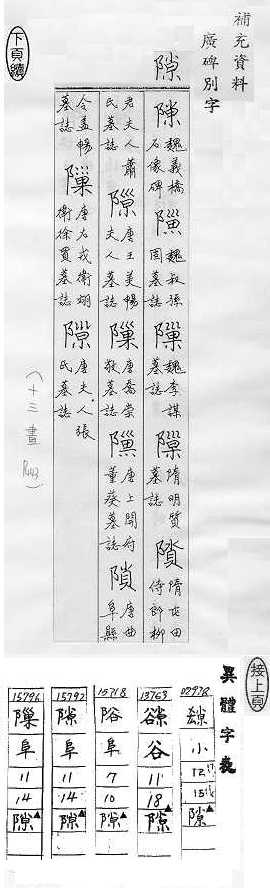 補充資料
廣碑別字
隙
隙 魏義橋石像碑 魏叔孫固墓誌 魏李謀墓誌 隋明質墓誌 隋屯田侍郎柳
君夫人蕭氏墓誌 唐王美暢夫人墓誌 唐喬崇敬墓誌 唐上開府董葵墓誌 唐曲阜縣
令蓋暢墓誌 唐左戎衛翊衛徐買墓誌 唐夫人張氏墓誌
(十三畫 P1443)
下頁續
接上頁
異體字表
02978 小 12 15 隙
13763 谷 11 18 隙
15718 阜 7 10 隙
15792 隙 阜 11 14 隙
15796 阜 11 14 隙